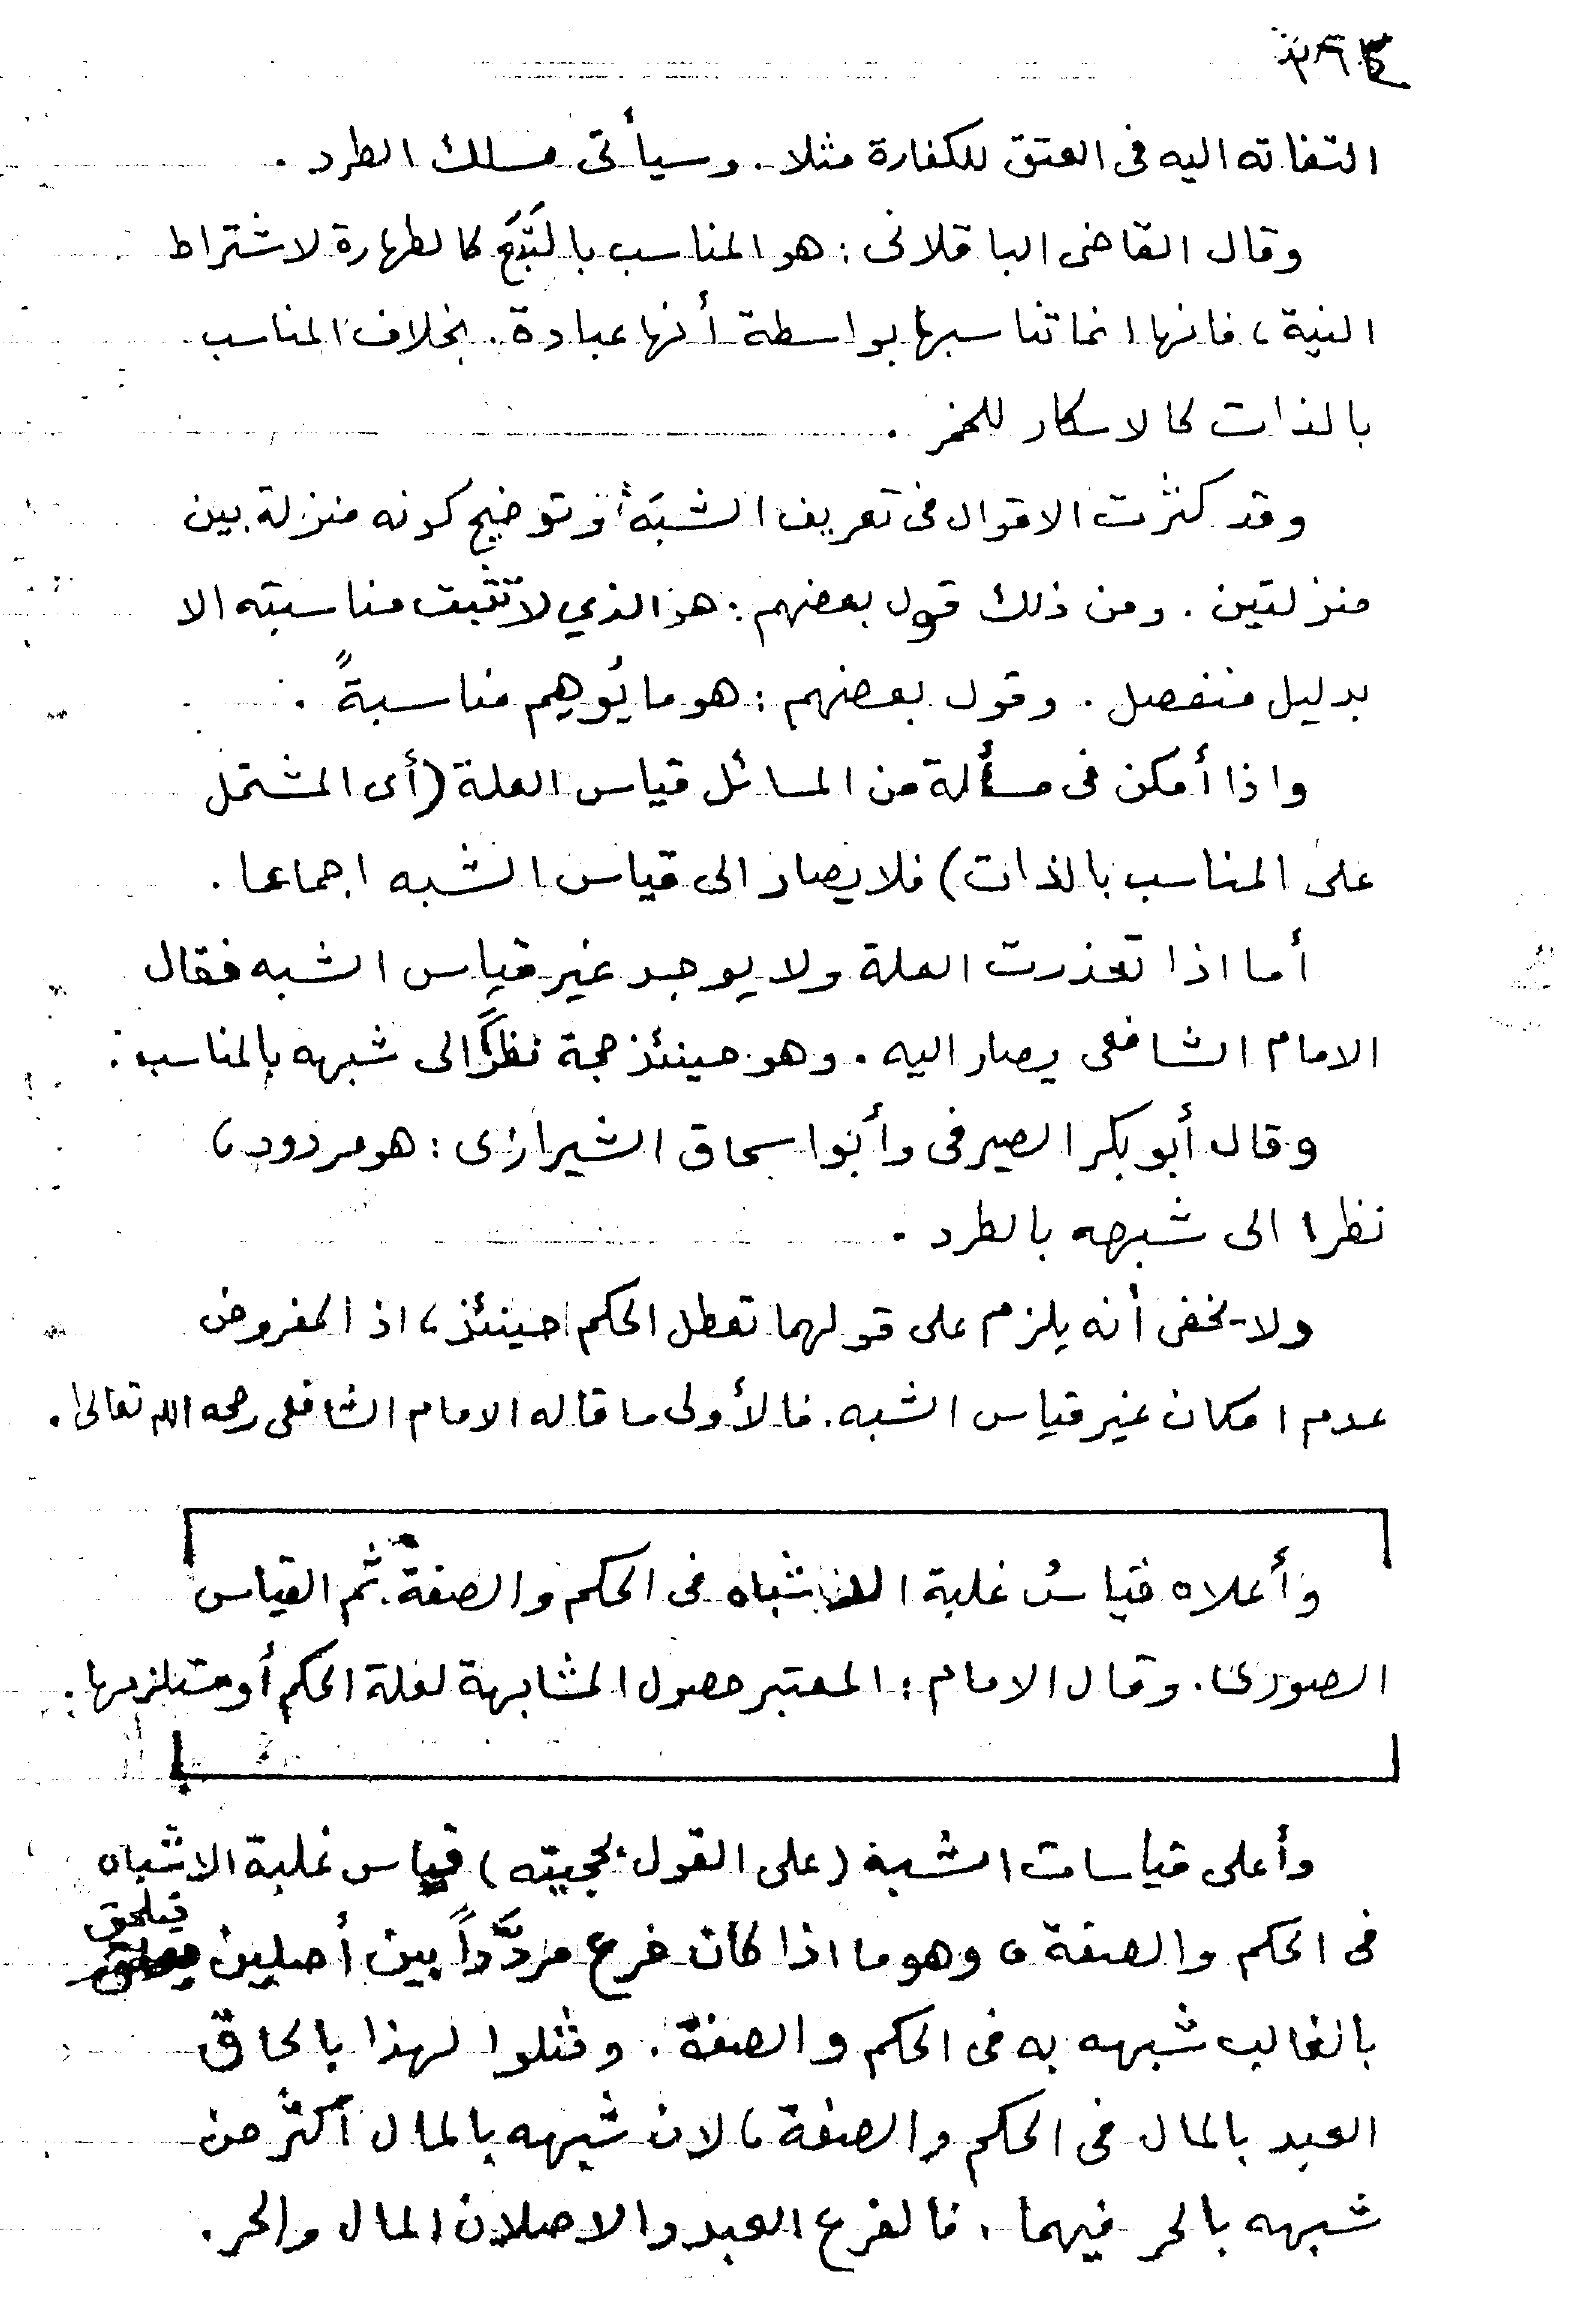 التفاته اليه فى العتق للكفارة مثلا. وسيأتى مسلك الطرد .
وقال القاضى الباقلانى : هو المناسب بالتَبَع كالطهارة لاشتراط
النية ، فانها انما تناسبها بواسطة أنها عبادة . بخلاف المناسب
بالذات كالاسكار للخمر .
وقد كثرت الاقوال فى تعريف الشبَه وتوضيح كونه منزلة بين
منزلتين . ومن ذلك قول بعضهم : هو الذي لا تثبت مناسبته الا
بدليل منفصل . وقول بعضهم : هو ما يُوهِم مناسبةً .
واذا أمكن فى مسألة من المسائل قياس العلة (أى المشتمل
على المناسب بالذات) فلا يصار الى قياس الشبه اجماعا .
أما اذا تعذرت العلة ولا يوجد غير قياس الشبه فقال
الامام الشافعى يصار اليه . وهو حينئذ حجة نظرًا الى شبهه بالمناسب .
وقال أبو بكر الصيرفى وأبو اسحاق الشيرازى : هو مردود ،
نظرا الى شبهه بالطرد .
ولا يخفى أنه يلزم على قولهما تعطل الحكم حينئذ ، اذ المفروض
عدم امكان غير قياس الشبه . فالأولى ما قاله الامام الشافعى رحمه الله تعالى .
وأعلاه قياسُ غلبة الاشباه فى الحكم والصفة . ثم القياس
الصورى . وقال الامام : المعتبر حصول المشابهة لعلة الحكم أو مستلزمها .
وأعلى قياسات الشبه (على القول بحجيته) قياس غلبة الاشباه
فى الحكم والصفة ، وهو ما اذا كان فرع مردَّداً بين أصلين فيلحق
بالغالب شبهه به فى الحكم والصفة . ومثلوا لهذا بالحاق
العبد بالمال فى الحكم والصفة ، لان شبهه بالمال أكثر من
شبهه بالحر فيهما . فالفرع العبد والاصلان المال والحر .